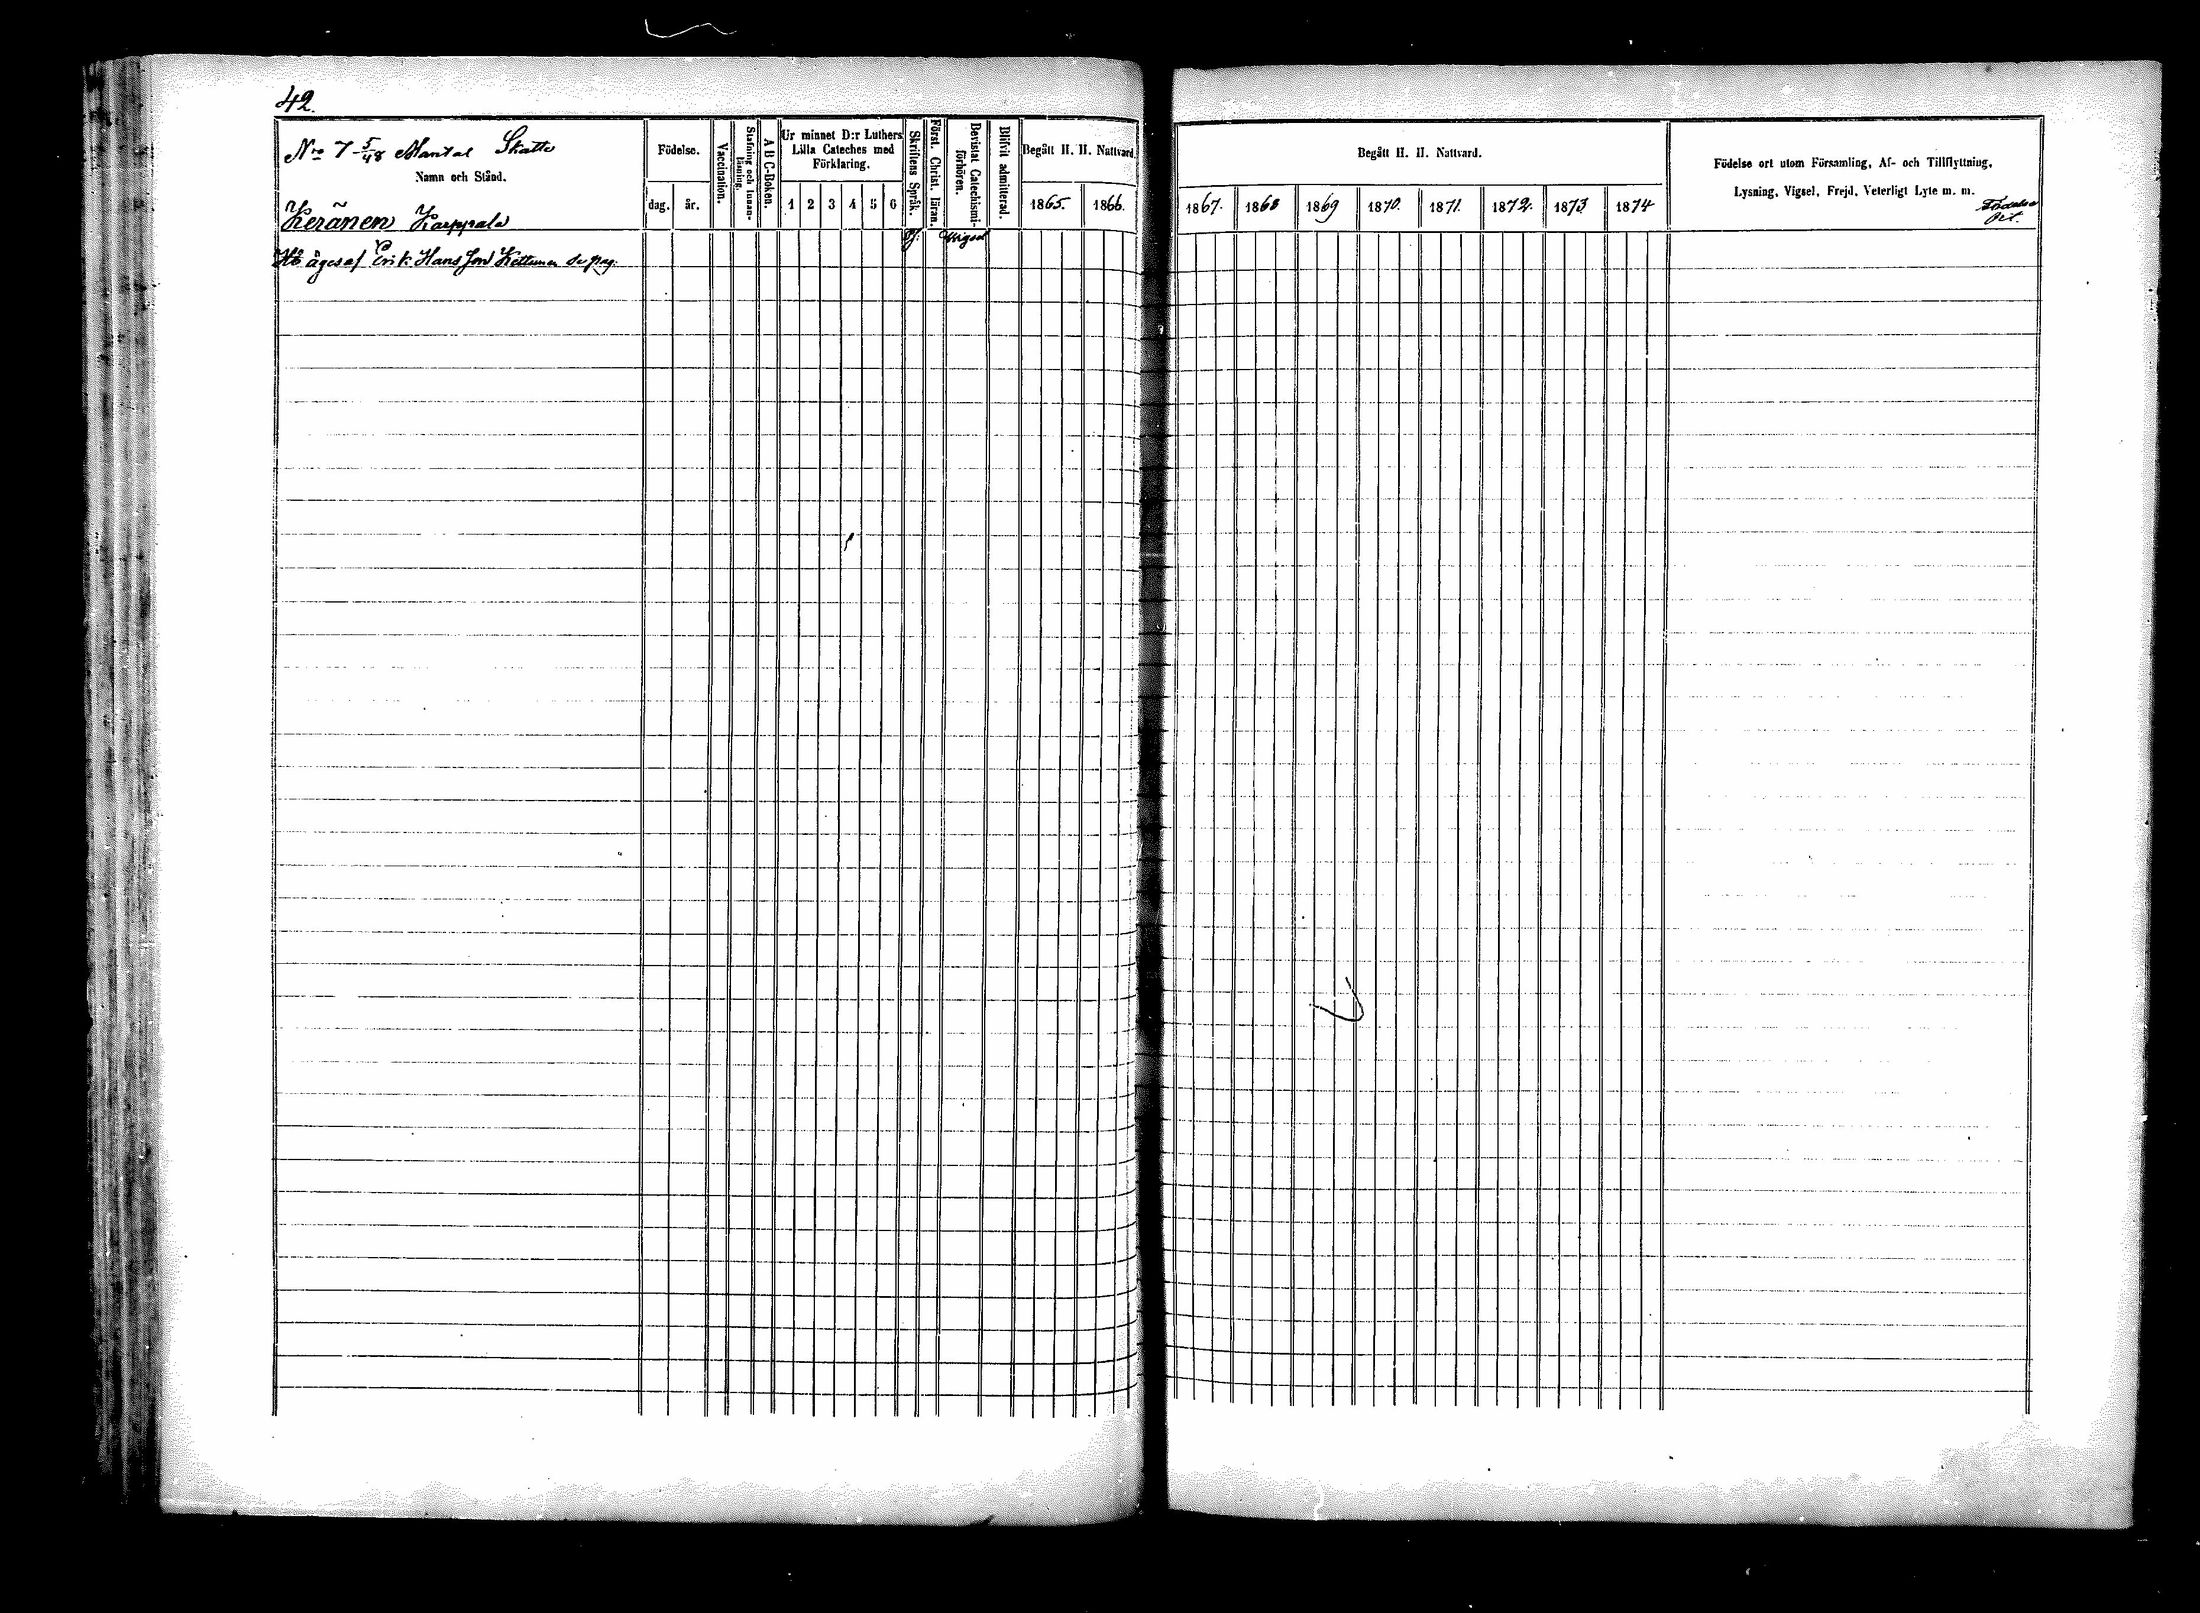 42.
Nro 7 5/48 Mantal Skatte
Namn och Stånd.
Keränen Karppala
Födelse.
dag. år.
Vaccination.
Stafning och Innanläsning.
A B C-Boken.
Ur minnet D:r Luthers
Lilla Cateches med
Förklaring.
1 2 3 4 5 6
Skriftens Språk.
Först. Christ. läran.
Bevistat Catechismiförhören.
Blifvit admitterad.
Begått H. H. Nattvard.
1865. 1866.
Vigsel
äges af Erik Hansson Kettunen se pag:
Begått H. H. Nattvard.
1867. 1868 1869 1870. 1871. 1872. 1873 1874
Födelse ort utom Församling, Af- och Tillflyttning,
Lysning, Vigsel, Frejd, Veterligt Lyte m. m.
Födelse
Ort.